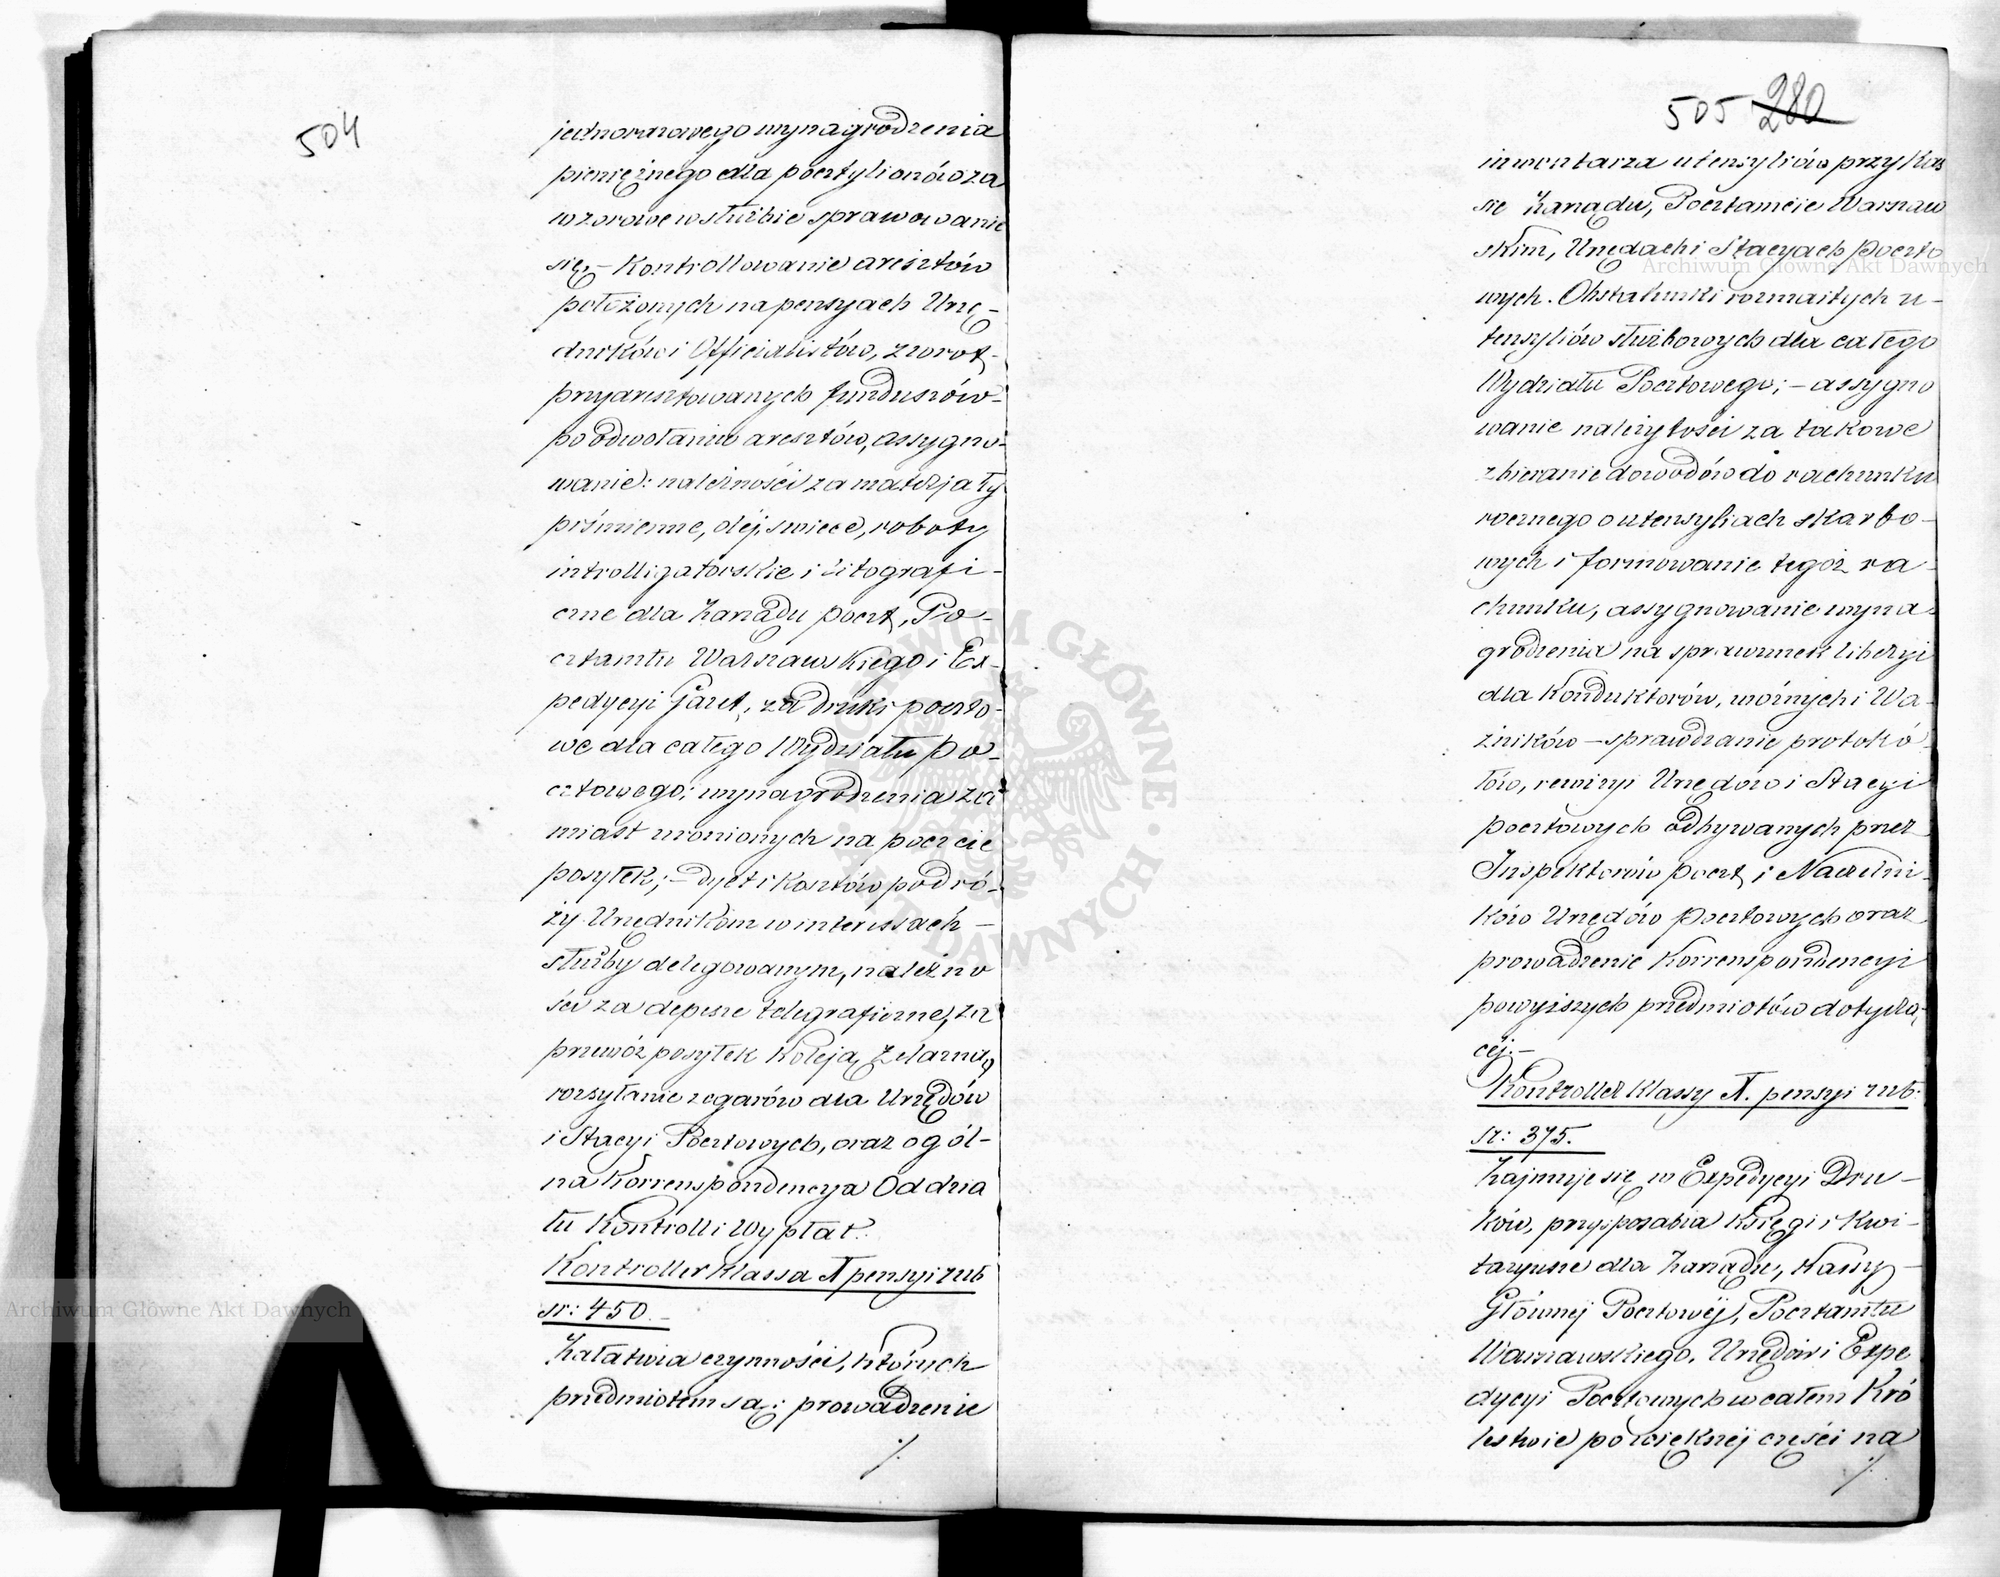 504
jednorazowego wynagrodzenia
pieniężnego dla pocztylionów za
wzorowe w służbie sprawowanie
się, – Kontrollowanie aresztów
położonych na pensyach Urzę-
dników i Officialistów, zwrot
przyaresztowanych funduszów
po odwołaniu aresztów, assygno-
wanie: należności za materjały
piśmienne, oléj, swiece, roboty
introlligatorskie i litografi-
czne dla Zarządu poczt, Po-
cztamtu Warszawskiego i Ex-
pedycyi Gazet, za druki poczto-
we dla całego Wydziału Po-
cztowego; wynagrodzenia za
miast uronionych na poczcie
posyłek; – dyet i kosztów podró-
ży Urzędnikom w interessach –
służby delegowanym, należno
ści za depesze telegraficzne, za
przewóz posyłek Koleją Żelazną,
rozsyłanie zegarów dla Urzędów
i Stacyi Pocztowych, oraz ogól-
na Korrenspondencya Oddzia
łu Kontrolli Wypłat.
Kontroller Klassa A pensyi rub
sr: 450. –
Załatwia czynności, których
przedmiotem są: prowadzenie
./.
505 280
inwentarza utensyliów przy Kas
sie Zarządu, Pocztamcie Warszaw
skim, Urzędach i Stacyach Poczto
wych. Obstalunki rozmaitych u-
tensyliów służbowych dla całego
Wydziału Pocztowego; – assygno
wanie należytości za takowe
zbieranie dowodów do rachunku
rocznego o utensyliach skarbo-
wych i formowanie tegoż ra-
chunku, assygnowanie wyna-
grodzenia na sprawunek liberyi
dla Konduktorów, woźnych i Wa-
żników – sprawdzanie protokó-
łów, rewizyi Urzędów i Stacyi
pocztowych odbywanych przez
Inspektorów poczt i Naczelni-
ków Urzędów Pocztowych oraz
prowadzenie Korrenspondencyi
powyższych przedmiotów dotyczą-
céj. –
Kontroller Klassy A. pensyi rub:
sr: 375.
Zajmuje się w Expedycyi Dru-
ków, przysposabia Księgi i Kwi-
taryusze dla Zarządu, Kassy –
Głównej Pocztowéj, Pocztamtu
Warszawskiego, Urzędów i Expe
dycyi Pocztowych w całem Kró
lestwie po większéj części na
./.
Archiwum Główne Akt Dawnych
Archiwum Główne Akt Dawnych
ARCHIWUM GŁÓWNE · AKT DAWNYCH ·